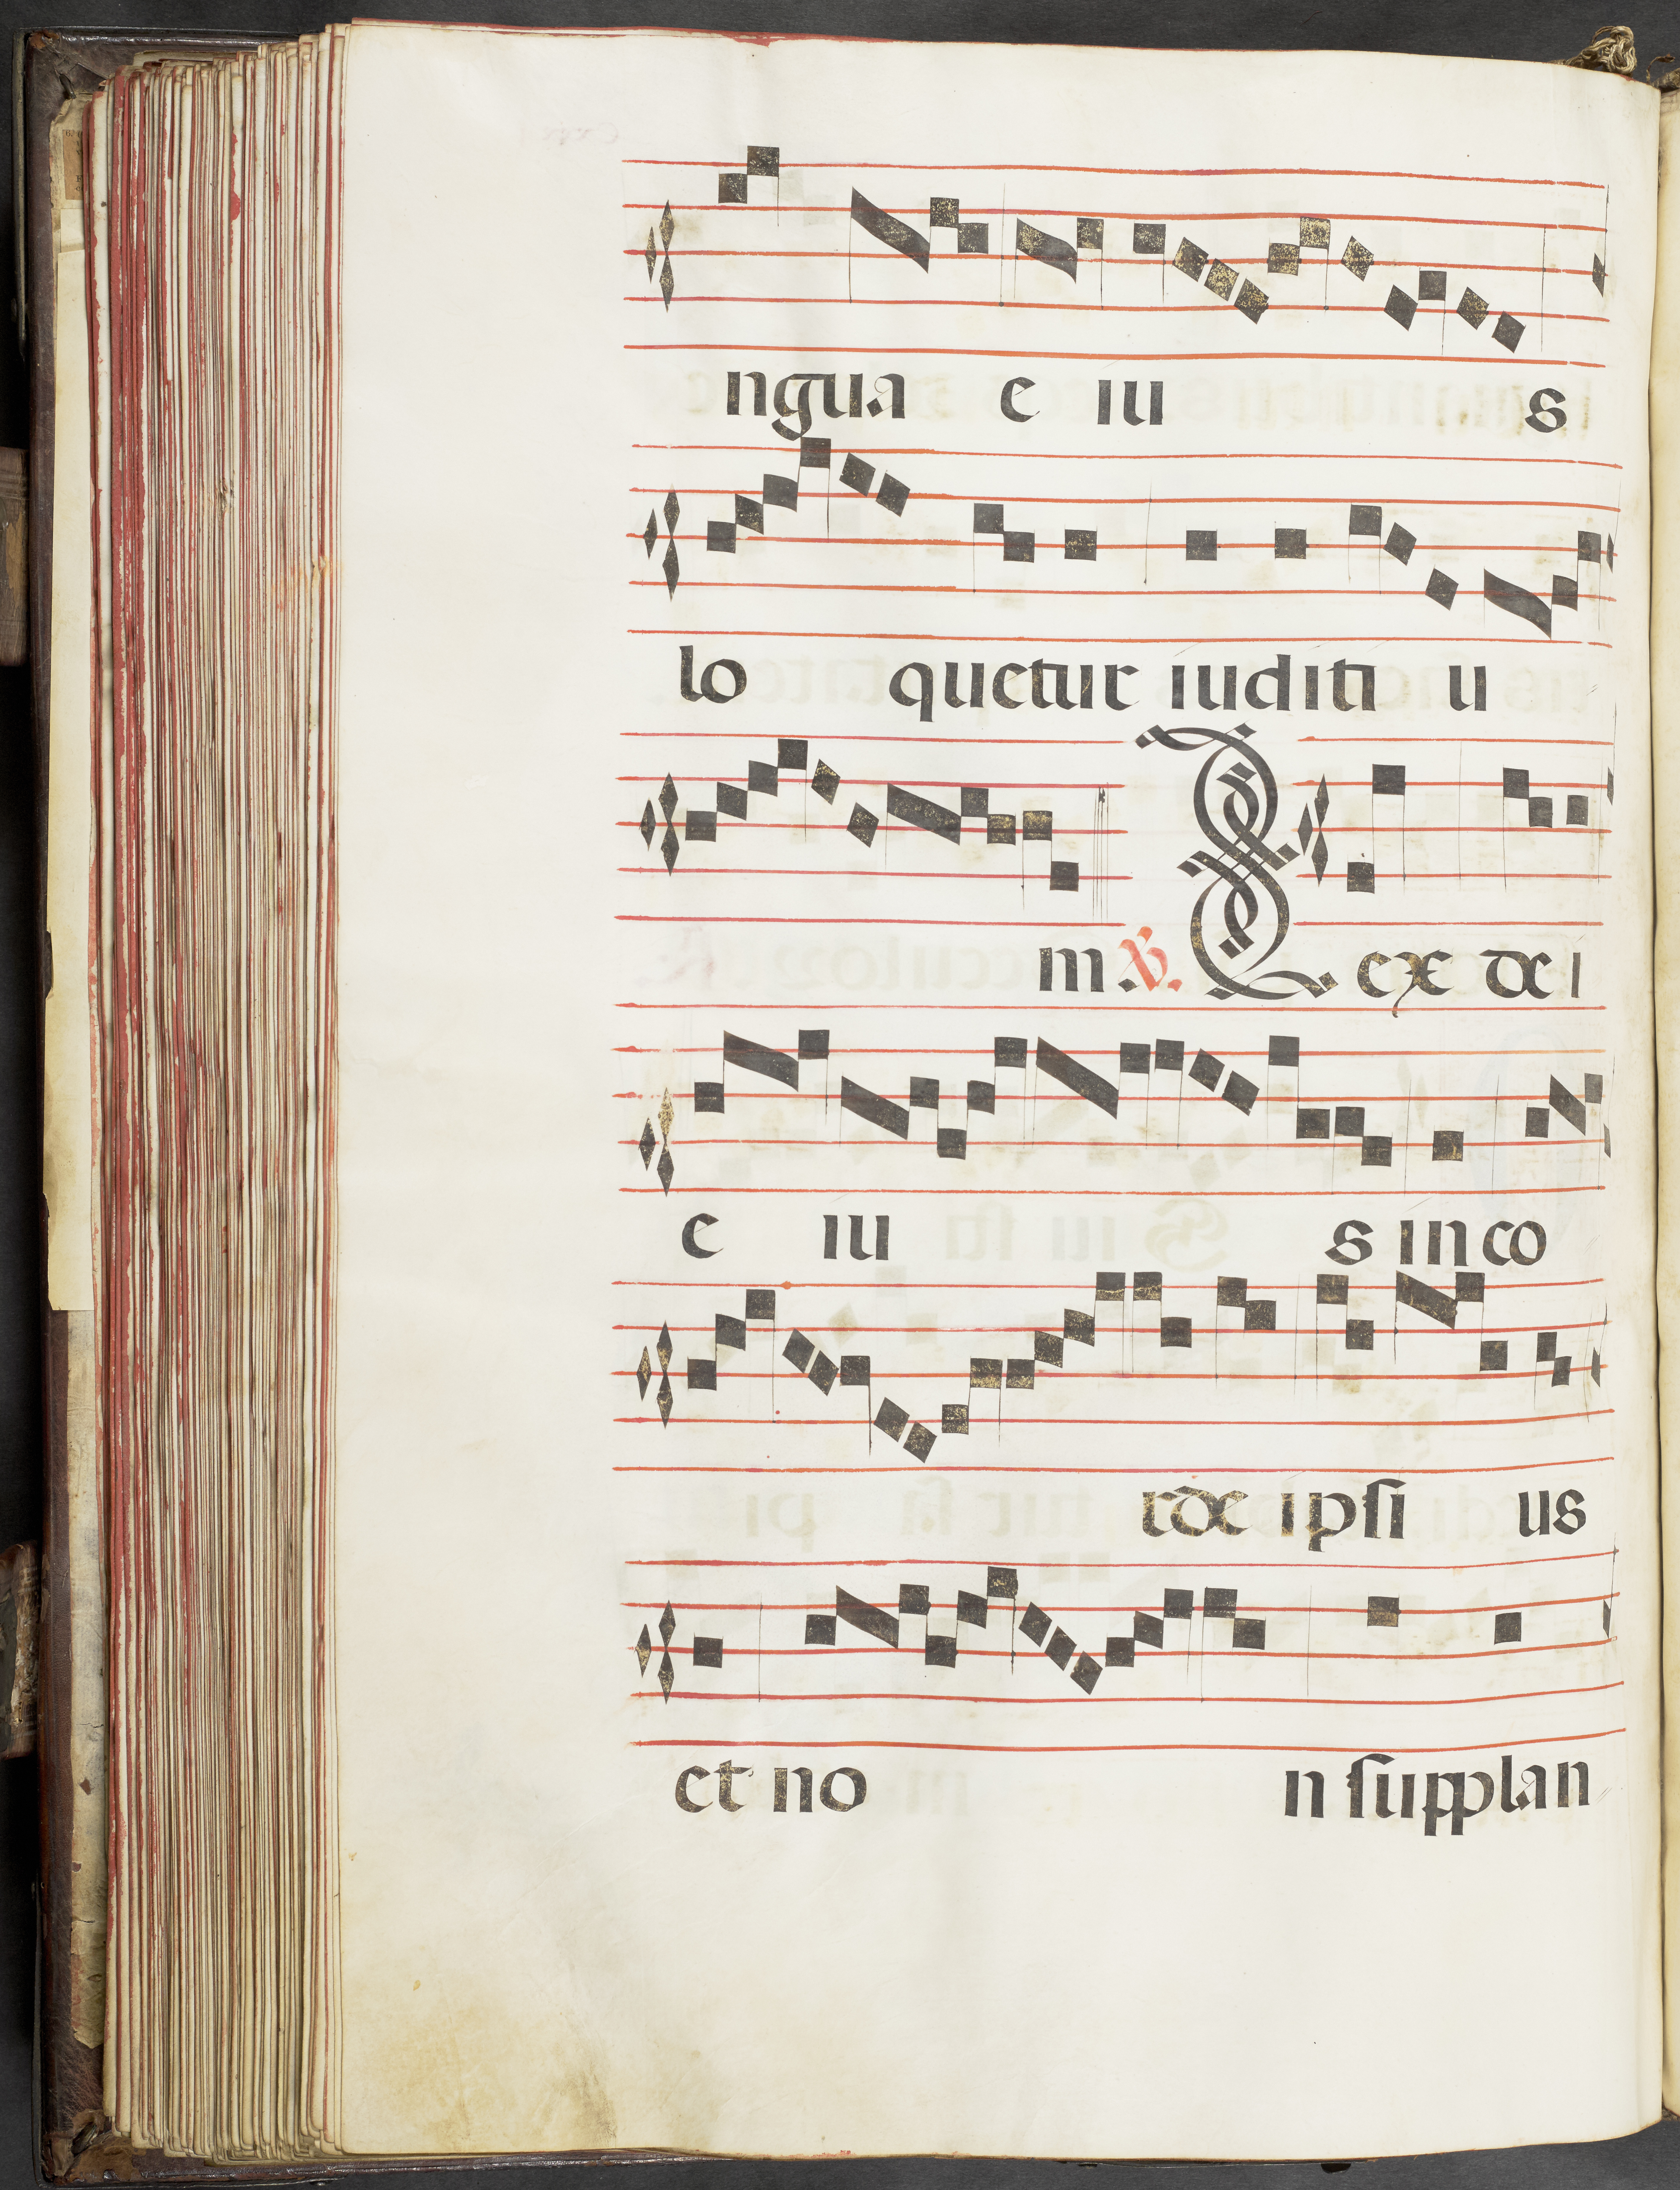 ngua e iu s
lo quetur iuditi u
m ℣. Lex dei
e iu s in co
rde ipsi us
et no n supplan